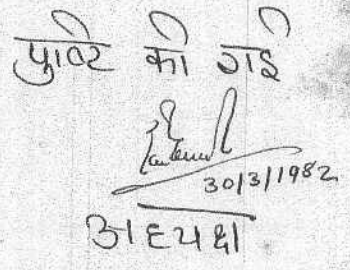 पुष्टि की गई
30/3/1982
अध्यक्ष